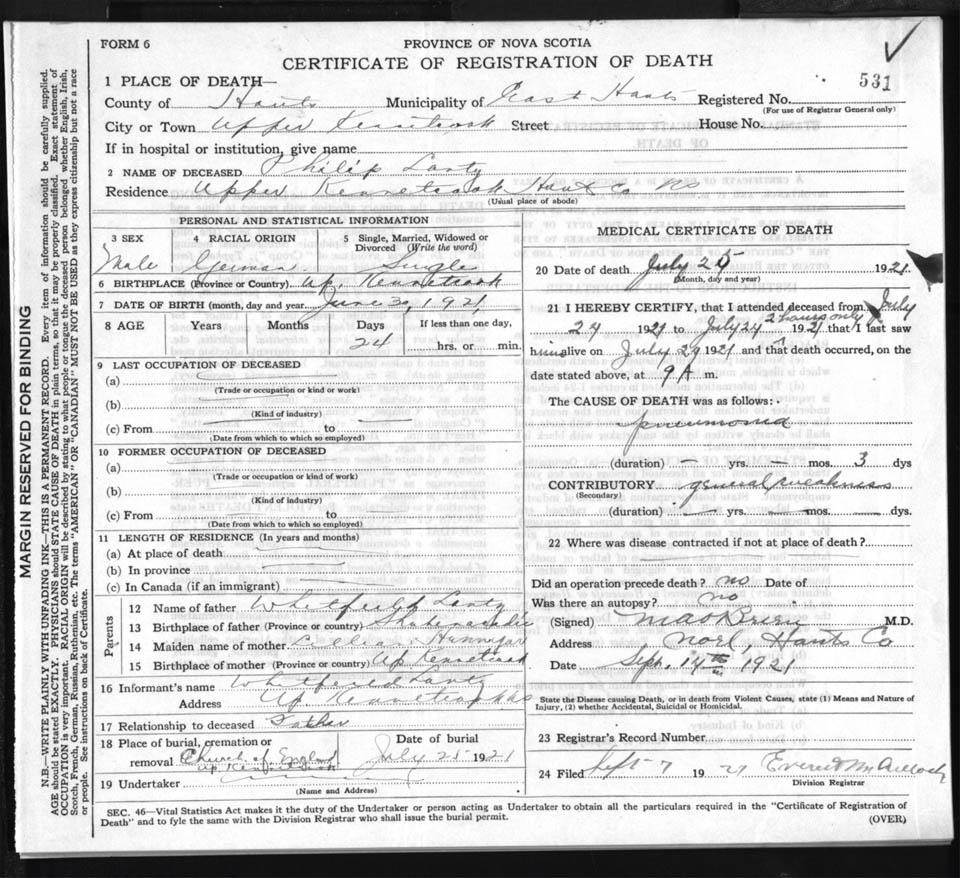 FORM 6
PROVINCE OF NOVA SCOTIA
CERTIFICATE OF REGISTRATION OF DEATH
531
1 PLACE OF DEATH—
County of Hants Municipality of East Hants Registered No.
(For use of Registrar General only)
City or Town Upper Kennetcook Street House No.
If in hospital or institution, give name
2 NAME OF DECEASED Philip Lantz
Residence Upper Kennetcook Hants Co NS
(Usual place of abode)
PERSONAL AND STATISTICAL INFORMATION
3 SEX 4 RACIAL ORIGIN 5 Single, Married, Widowed or Divorced (Write the word)
Male German Single
6 BIRTHPLACE (Province or Country) Up. Kennetcook
7 DATE OF BIRTH (month, day and year) June 30, 1921
8 AGE Years Months Days If less than one day,
24 hrs. or min.
9 LAST OCCUPATION OF DECEASED
(a)
(Trade or occupation or kind or work)
(b)
(Kind of industry)
(c) From to
(Date from which to which so employed)
10 FORMER OCCUPATION OF DECEASED
(a)
(Trade or occupation or kind of work)
(b)
(Kind of industry)
(c) From to
(Date from which to which so employed)
11 LENGTH OF RESIDENCE (In years and months)
(a) At place of death
(b) In province
(c) In Canada (if an immigrant)
Parents
12 Name of father Lantz
13 Birthplace of father (Province or country)
14 Maiden name of mother Hannigar
15 Birthplace of mother (Province or country) Up Kennetcook
16 Informant's name Lantz
Address Up Kennetcook
17 Relationship to deceased Father
18 Place of burial, cremation or removal Church of England Up Kennetcook
Date of burial July 25 1921
19 Undertaker
(Name and Address)
MEDICAL CERTIFICATE OF DEATH
20 Date of death July 25 1921
(Month, day and year)
21 I HEREBY CERTIFY, that I attended deceased from July
24 1921 to July 24 2 hours only 1921 that I last saw
him alive on July 1921 and that death occurred, on the
date stated above, at 9 A m.
The CAUSE OF DEATH was as follows:
pneumonia
(duration) — yrs. — mos. 3 dys
CONTRIBUTORY general weakness
(Secondary)
(duration) — yrs. — mos. — dys.
22 Where was disease contracted if not at place of death?
Did an operation precede death? no Date of
Was there an autopsy? no
(Signed) M.D.
Address Noel, Hants Co
Date Sept. 14th 1921
State the Disease causing Death, or in death from Violent Causes, state (1) Means and Nature of
Injury, (2) whether Accidental, Suicidal or Homicidal.
23 Registrar's Record Number
24 Filed Sept 7 1921
Division Registrar
SEC. 46—Vital Statistics Act makes it the duty of the Undertaker or person acting as Undertaker to obtain all the particulars required in the "Certificate of Registration of
Death" and to fyle the same with the Division Registrar who shall issue the burial permit.
(OVER)
MARGIN RESERVED FOR BINDING
N.B.—WRITE PLAINLY WITH UNFADING INK—THIS IS A PERMANENT RECORD. Every item of information should be carefully supplied.
AGE should be stated EXACTLY. PHYSICIANS should STATE CAUSE OF DEATH in plain terms, so that it may be properly classified. Exact statement of
OCCUPATION is very important. RACIAL ORIGIN will be described by stating to what people or tongue the deceased person belonged whether English, Irish,
Scotch, French, German, Russian, Ruthenian, etc. The terms "AMERICAN" or "CANADIAN" MUST NOT BE USED as they express citizenship but not a race
or people. See instructions on back of Certificate.